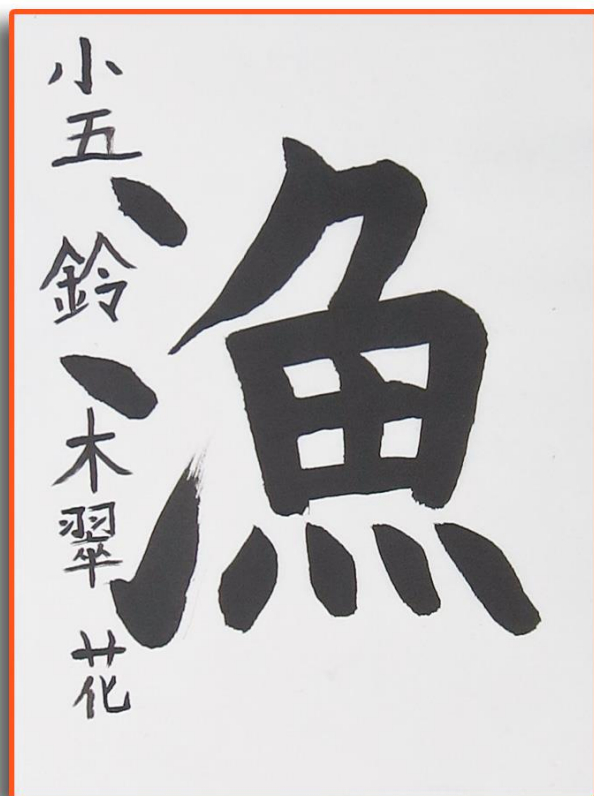 漁
小五 鈴木翠花